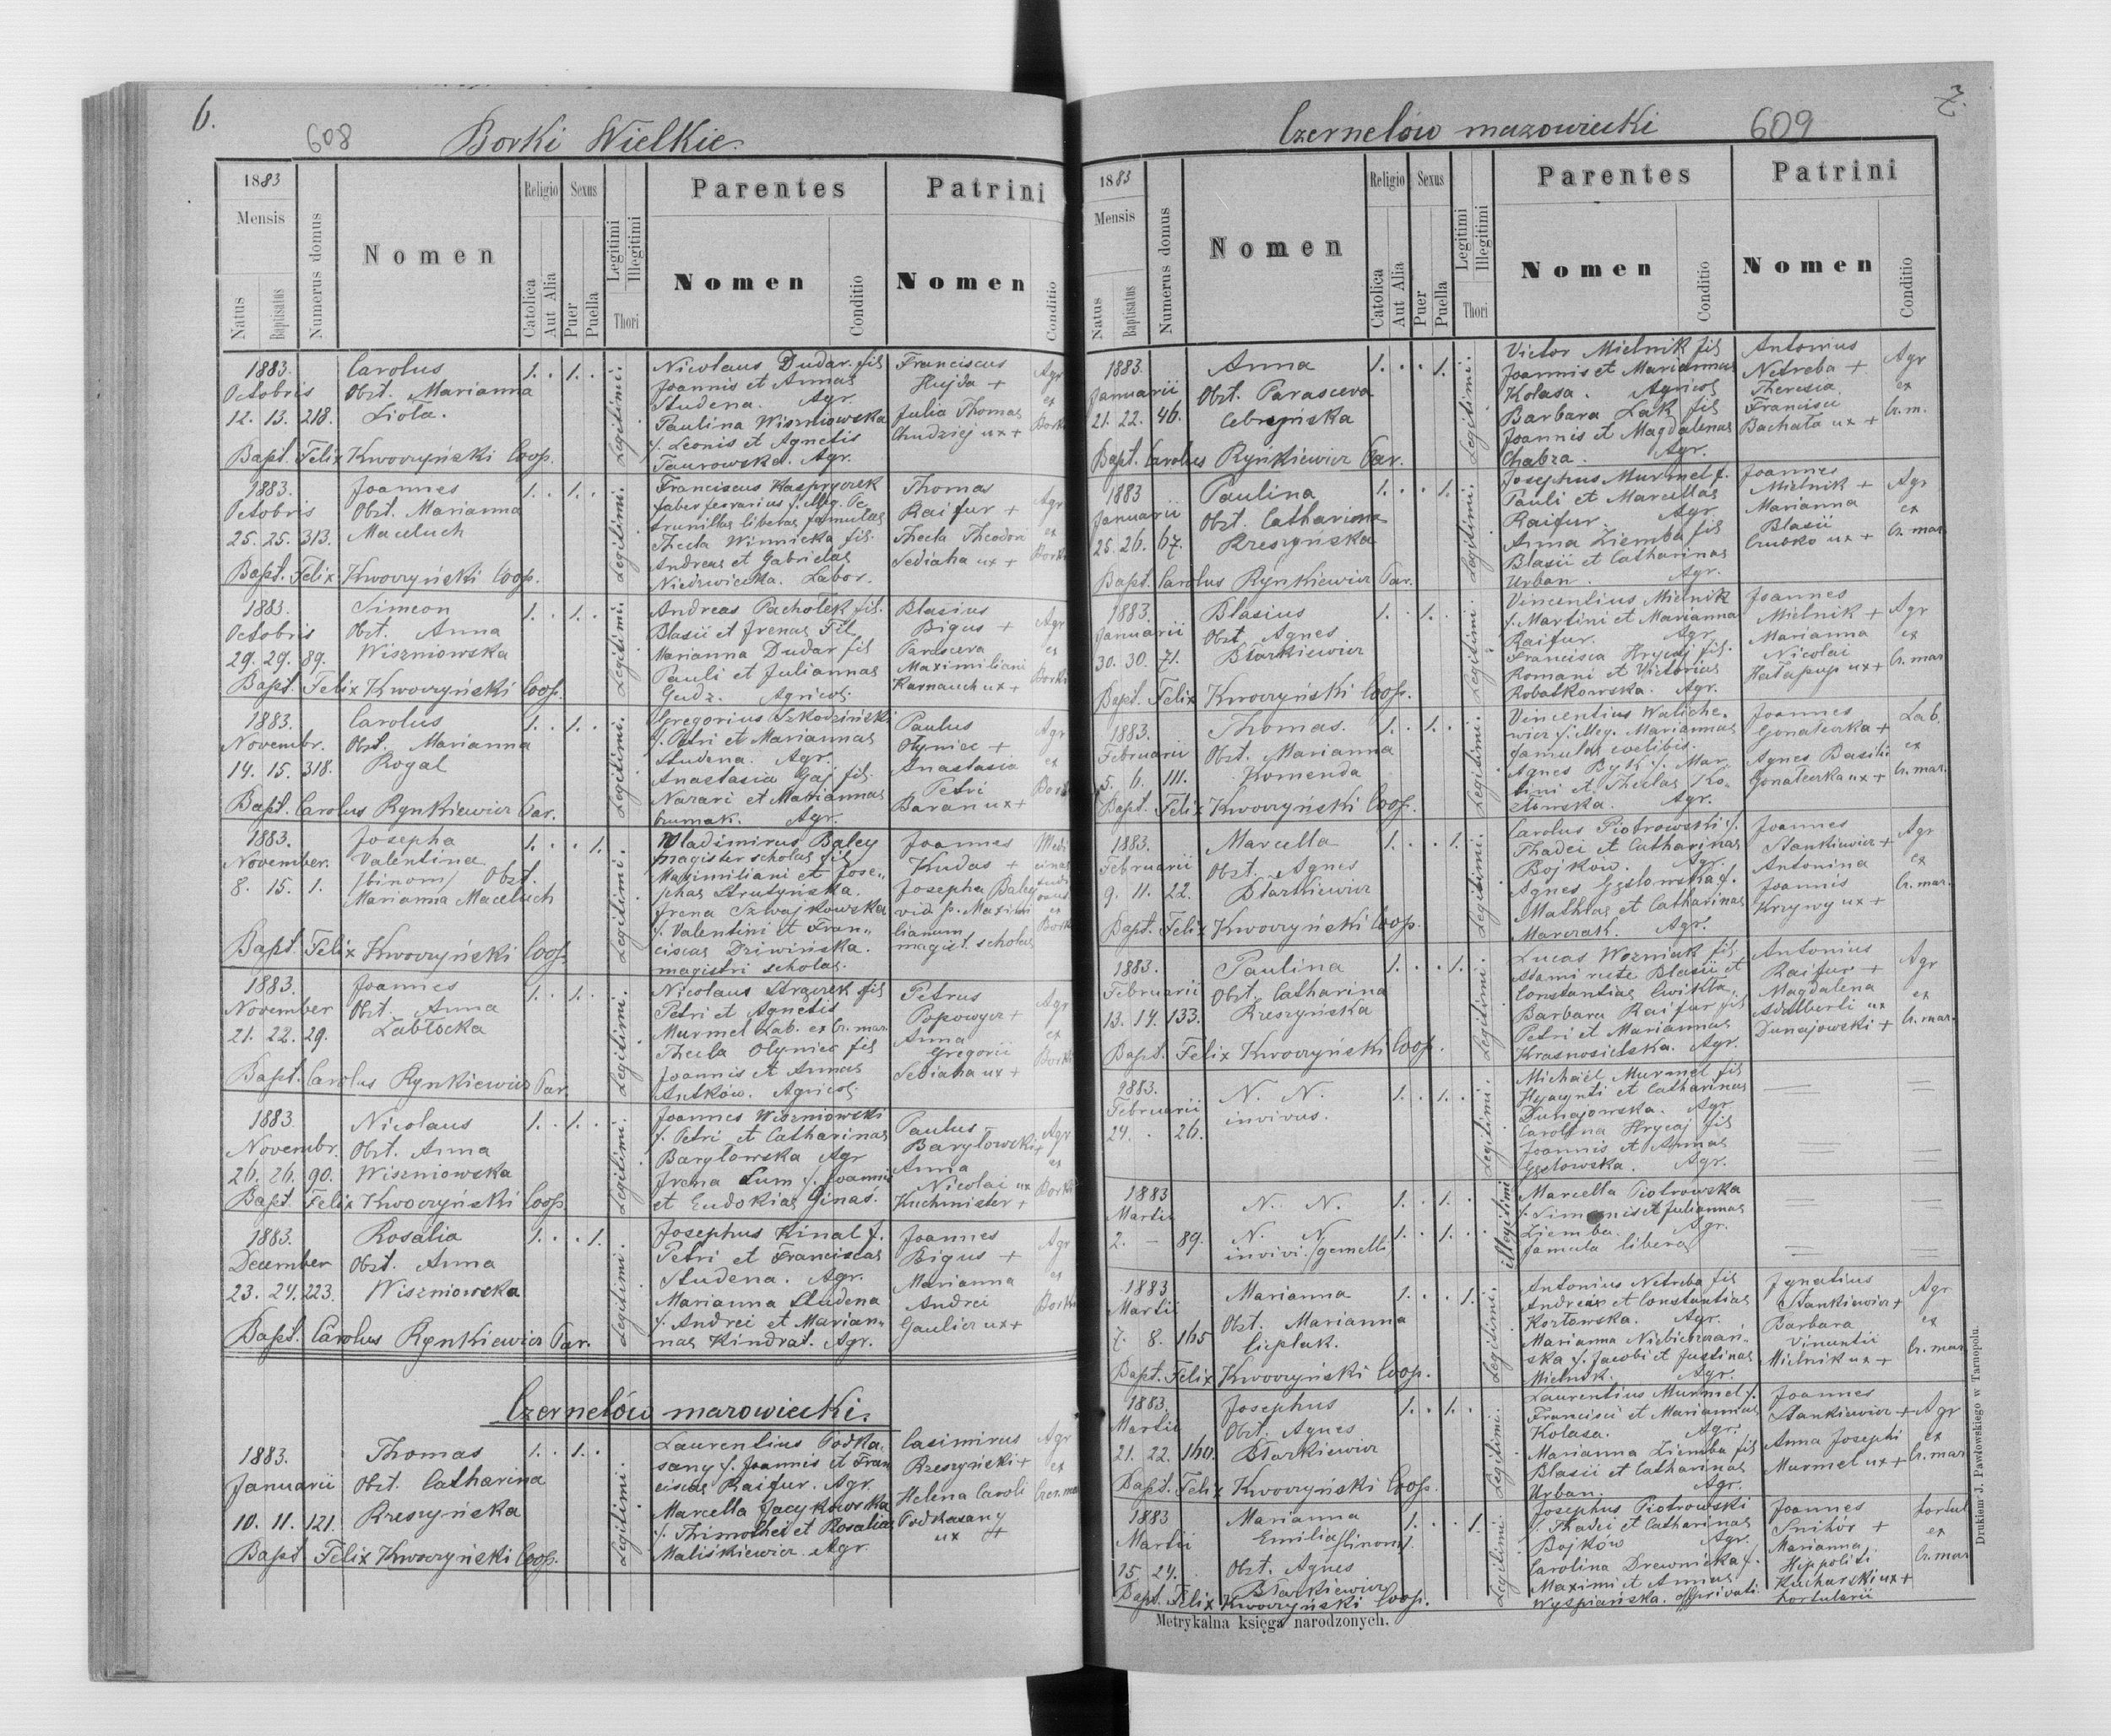 6.
608
Borki Wielkie.
1883
Mensis
Natus
Baptisatus
Numerus domus
Nomen
Religio
Catolica
Aut Alia
Sexus
Puer
Puella
Legitimi
Illegitimi
Thori
Parentes
Nomen
Conditio
Patrini
Nomen
Conditio
1883.
Octobris
12. 13. 218.
Carolus
Obst. Marianna
Liota.
1. . 1. .
Legitimi.
Nicolaus Dudar. fil
Joannis et Annae
Studena. Agr.
Paulina Wiszniowska
f. Leonis et Agnetis
Taurowska. Agr.
Franciscus
Hujda +
Julia Thomae
Chudziej ux +
Agr
ex
Borki
Bapt. Felix Kwoczyński Coop.
1883.
Octobris
25. 25. 313.
Joannes
Obst. Marianna
Maceluch
1. . 1. .
Legitimi.
Franciscus Kaspryczek
faber ferrarius f. illeg. Pe
trunillae liberae famulae
Thecla Winnicka fil.
Andreae et Gabrielae
Niedzwiecka. Labor.
Thomas
Raifur +
Thecla Theodora
Sediaha ux +
Agr
ex
Borki
Bapt. Felix Kwoczyński Coop.
1883.
Octobris
29. 29. 89.
Simeon
Obst. Anna
Wiszniowska
1. . 1. .
Legitimi.
Andreas Pacholek fil.
Blasii et Irenae Fil
Marianna Dudar fil
Pauli et Juliannae
Gudz. Agricol.
Blasius
Bigus +
Parasceva
Maximiliani
Karnauch ux +
Agr
ex
Borki
Bapt. Felix Kwoczyński Coop.
1883.
Novembr.
14. 15. 318.
Carolus
Obst. Marianna
Rogal
1. . 1. .
Legitimi.
Gregorius Szkodziński
f. Petri et Mariannae
Studena. Agr.
Anastasia Gaj fil.
Nazari et Mariannae
Czumak. Agr.
Paulus
Olyniec +
Anastasia
Petri
Baran ux +
Agr
ex
Bork
Bapt. Carolus Rynkiewicz Par.
1883.
November.
8. 15. 1.
Josepha
Valentina
/binom/ Obst.
Marianna Maceluch
1. . . 1.
Legitimi.
Wladimirus Baley
magister scholae fil
Maximiliani et Jose„
phae Strutyńska.
Irena Szwajkowska
f. Valentini et Fran„
ciscae Dziwińska.
magistri scholae.
Joannes
Kudas +
Josepha Baley
vid p. Maximi
lianum
magist. scholae
Medi
cinae
ex
Bork
Bapt. Felix Kwoczyński Coop.
1883.
November
21. 22. 29.
Joannes
Obst. Anna
Zabłocka
1. . 1. .
Legitimi.
Nicolaus Strączek fil
Petri et Agnetis
Murmel Lab. ex Cr. maz.
Thecla Olyniec fil
Joannis et Annae
Antków. Agricol.
Petrus
Popowycz +
Anna
Gregorii
Sediaha ux +
Agr
ex
Borki
Bapt. Carolus Rynkiewicz Par.
1883.
Novembr.
26. 26. 90.
Nicolaus
Obst. Anna
Wiszniowska
1. . 1. .
Legitimi.
Joannes Wiszniowski
f. Petri et Catharinae
Barylowska Agr
Irena Lum f. Joannis
et Eudokiae Ginaś.
Paulus
Barylowski +
Anna
Nicolai ux
Kuchmister +
Agr
ex
Borki
Bapt. Felix Kwoczyński Coop.
1883.
December
23. 24. 223.
Rosalia
Obst. Anna
Wiszniowska
1. . . 1.
Legitimi.
Josephus Kinal f.
Petri et Franciscae
Studena. Agr.
Marianna Studena
f. Andrei et Marian„
nae Kindrat. Agr.
Joannes
Bigus +
Marianna
Andrei
Gaulicz ux +
Agr
ex
Borki
Bapt. Carolus Rynkiewicz Par.
Czernelów mazowiecki.
1883.
Januarii
10. 11. 121.
Thomas
Obst. Catharina
Rzeszyńska
1. . 1. .
Legitimi.
Laurentius Podka„
sany f. Joannis et Fran
ciscae Raifur. Agr.
Marcella Jacykowska
f. Thimothei et Rosaliae
Maliśkiewicz. Agr.
Casimirus
Rzeszyński +
Helena Caroli
Podkasany
ux +
Agr
ex
Czer. ma
Bapt Felix Kwoczyński Coop.
7.
Czernelów mazowiecki
609
1883
Mensis
Natus
Baptisatus
Numerus domus
Nomen
Religio
Catolica
Aut Alia
Sexus
Puer
Puella
Legitimi
Illegitimi
Thori.
Parentes
Nomen
Conditio
Patrini
Nomen
Conditio
1883.
Januarii
21. 22. 46.
Anna
Obst. Parasceva
Cebryńska
1. . . 1.
Legitimi.
Victor Mielnik fil
Joannis et Mariannae
Kolasa. Agricol
Barbara Lak fil
Joannis et Magdalenae
Chabza. Agr.
Antonius
Netreba +
Theresia
Francisci
Bachata ux +
Agr
ex
Cr. m.
Bapt. Carolus Rynkiewicz Par.
1883
Januarii
25. 26. 67.
Paulina
Obst. Catharina
Rzeszyńska
1. . . 1.
Legitimi.
Josephus Murmel f.
Pauli et Marcellae
Raifur. Agr.
Anna Ziemba fil
Blasii et Catharinae
Urban. Agr.
Joannes
Mielnik +
Marianna
Blasii
Czubko ux +
Agr
ex
Cr. maz
Bapt. Carolus Rynkiewicz Par.
1883.
Januarii
30. 30. 71.
Blasius
Obst. Agnes
Błazkiewicz
1. . 1. .
Legitimi.
Vincentius Mielnik
f. Martini et Marianna
Raifur. Agr.
Francisca Hrycaj fil.
Romani et Victoriae
Robatkowska. Agr.
Joannes
Mielnik +
Marianna
Nicolai
Hałapup ux +
Agr
ex
Cr. maz
Bapt. Felix Kwoczyński Coop.
1883.
Februarii
5. 6. 111.
Thomas.
Obst. Marianna
Komenda
1. . 1. .
Legitimi.
Vincentius Waliche„
wicz f. illeg. Mariannae
famulae coelibis.
Agnes Byk f. Mar„
tini et Theclae Ko„
złowska. Agr.
Joannes
Gonaterka +
Agnes Basilii
Gonaterka ux +
Lab.
ex
Cr. maz.
Bapt. Felix Kwoczyński Coop.
1883.
Februarii
9. 11. 22.
Marcella
Obst. Agnes
Błazkiewicz
1. . . 1.
Legitimi.
Carolus Piotrowski f.
Thadei et Catharinae
Bojków. Agr.
Agnes Gęslowska f.
Mathiae et Catharinae
Marczak. Agr.
Joannes
Stankiewicz +
Antonina
Joannis
Krzywy ux +
Agr
ex
Cr. maz.
Bapt. Felix Kwoczyński Coop.
1883.
Februarii
13. 14. 133.
Paulina
Obst. Catharina
Rzeszyńska
1. . . 1.
Legitimi.
Lucas Wozniak fil
Adami recte Blasii et
Constantiae Cwikła.
Barbara Raifur fil
Petri et Mariannae
Krasnosielska. Agr.
Antonius
Raifur +
Magdalena
Adalberti ux
Dunajowski +
Agr
ex
Cr. maz.
Bapt. Felix Kwoczyński Coop.
1883.
Februarii
24. . 26.
N. N.
invivus.
1. . 1. .
Legitimi.
Michaël Murmel fil
Hyacynti et Catharinae
Dunajowska. Agr.
Carolina Hrycaj fil
Joannis et Annae
Gęslowska. Agr.
1883
Martii
2. — 89.
N. N.
N. N
invivi. /gemelli
1. . 1. .
1. . 1. .
illegitimi
Marcella Piotrowska
f. Simonis et Juliannae
Ziemba. Agr.
famula libera
1883
Martii
7. 8. 165
Marianna
Obst. Marianna
Cieplak.
1. . . 1.
Legitimi.
Antonius Netreba fil
Andreae et Constantiae
Kozłowska. Agr.
Marianna Niebieszczań„
ska f. Jacobi et Justinae
Mielnik. Agr.
Ignatius
Stankiewicz +
Barbara
Vincentii
Mielnik ux +
Agr
ex
Cr. maz
Bapt. Felix Kwoczyński Coop.
1883.
Martii
21. 22. 160.
Josephus
Obst. Agnes
Błazkiewicz
1. . 1. .
Legitimi.
Laurentius Murmel f.
Francisci et Mariannae
Kolasa. Agr.
Marianna Ziemba fil
Blasii et Catharinae
Urban. Agr.
Joannes
Stankiewicz +
Anna Josephi
Murmel ux +
Agr
ex
Cr. maz
Bapt. Felix Kwoczyński Coop.
1883
Martii
15. 24.
Marianna
Emilia /binom/.
Obst. Agnes
Błazkiewicz
1. . . 1.
Legitimi.
Josephus Piotrowski
f. Thadei et Catharinae
Bojków Agr.
Carolina Drewnicka f.
Maximi et Annae
Wyspiańska. off privati.
Joannes
Snihór +
Marianna
Hippoliti
Kucharski ux +
hortularii
hortul
ex
Cr. maz
Bapt. Felix Kwoczyński Coop.
Metrykalna księga narodzonych.
Drukiem J. Pawłowskiego w Tarnopolu.